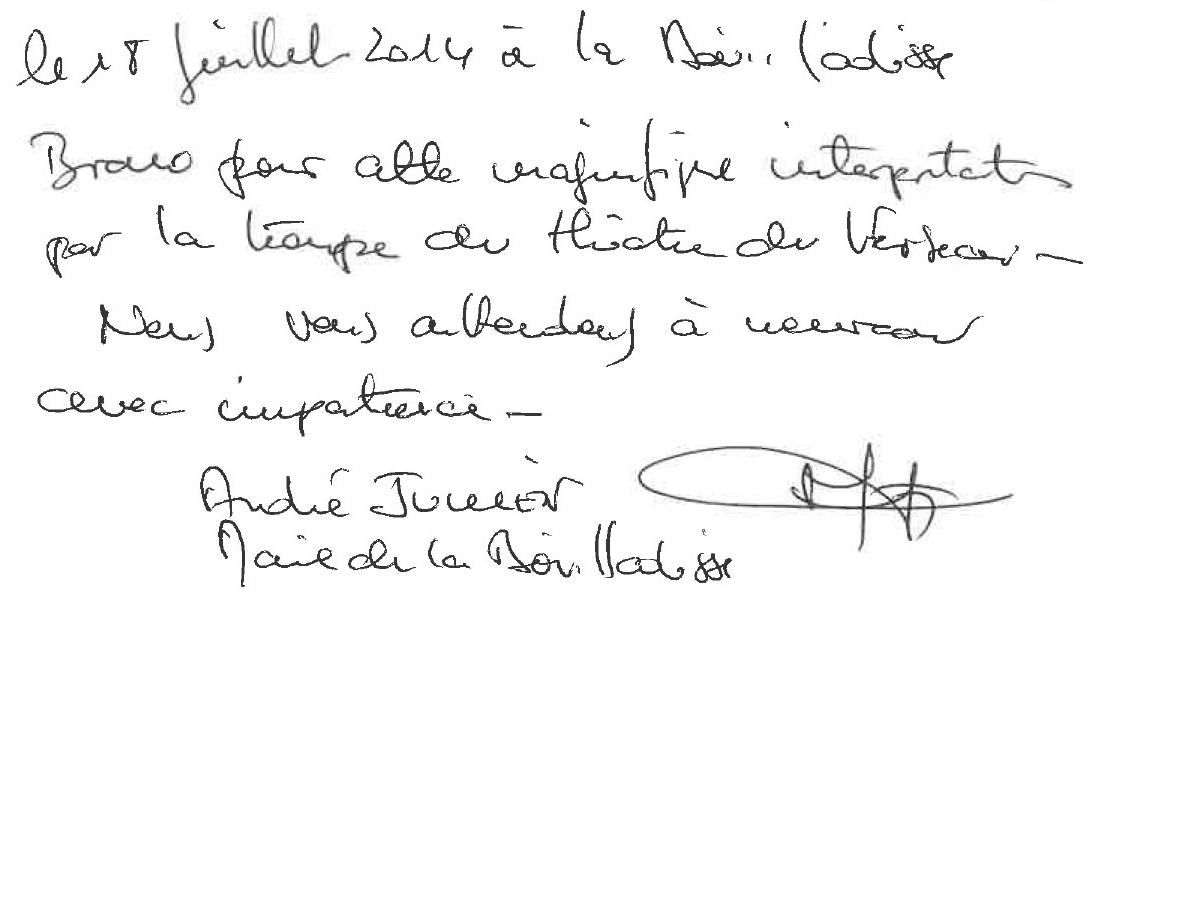 le 18 Juillet 2014 à la Bouilladisse
Bravo pour cette magnifique interprétation
par la troupe du théâtre du Verseau -
Nous vous attendons à nouveau
avec impatience -
André JULLIEN
Maire de la Bouilladisse